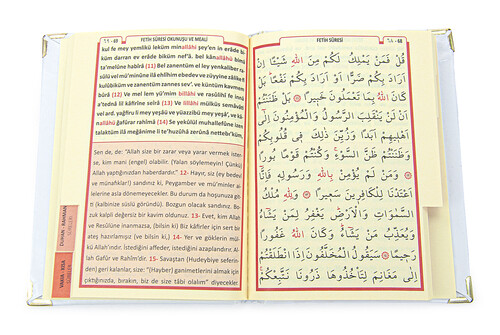 ٦٩ - 69
FETİH SÛRESİ OKUNUŞU ve MEALİ
kul fe mey yemlikü leküm minallâhi şey'en in erâde bi-
küm darran ev erâde biküm nef'â, bel kânallâhü bimâ
ta'melûne habîrâ (11) Bel zanentüm el ley yenkaliber ra-
sûlü vel mü'minûne ilâ ehlîhim ebedev ve züyyine zâlike fî
kulûbiküm ve zanentüm zannes sev'. ve küntüm kavmem
bûrâ (12) Ve mel lem yü'mim billâhi ve rasûlihî fe innâ
a'tednâ lil kâfirîne seîrâ (13) Ve lillâhi mülküs semâvâti
vel ard, yağfiru li mey yeşâü ve yüazzibü mey yeşâ', ve kâ-
nallâhü ğafûrar rahîmâ (14) Se yekûlül muhallefûne izen
talaktüm ilâ meğânime li te'huzûhâ zerûnâ nettebi'küm,
Sen de, de: "Allah size bir zarar veya yarar vermek ister-
se, kim mani (engel) olabilir. (Yalan söylemeyin! Çünkü)
Allah yaptığınızdan haberdardır." 12- Hayır, siz (ey bedevi
ve münafıklar!) sandınız ki, Peygamber ve mü'minler ai-
lelerine asla dönemeyecekler. Bu durum da hoşunuza gitti
(kalbinize süslü göründü). Bozgun olacak sandınız. Bo-
zuk kalpli değersiz bir kavim oldunuz. 13- Evet, kim Allah
ve Resûlüne inanmazsa, (bilsin ki) Biz kâfirler için sert bir
ateş hazırlamışız (ve bilsin ki,) 14- Yer ve göklerin mül-
kü Allah'ındır. İstediğini affeder, istediğini azaplandırır. Al-
lah Gafûr ve Rahîm'dir. 15- Savaştan (Hudeybiye seferin-
den) geri kalanlar, size: "(Hayber) ganimetlerini almak için
çıktığınızda, bırakın, biz de size tâbi olalım" diyecekler.
DUHAN - RAHMAN
SURELERİ
VAKIA - KISA
SURELER
FETİH SÛRESİ
٦٨ - 68
قُلْ فَمَنْ يَمْلِكُ لَكُمْ مِنَ اللّٰهِ شَيْئًا اِنْ
اَرَادَ بِكُمْ ضَرًّا اَوْ اَرَادَ بِكُمْ نَفْعًا بَلْ
كَانَ اللّٰهُ بِمَا تَعْمَلُونَ خَبِيرًا بَلْ ظَنَنْتُمْ
اَنْ لَنْ يَنْقَلِبَ الرَّسُولُ وَالْمُؤْمِنُونَ اِلٰٓى
اَهْلِيهِمْ اَبَدًا وَزُيِّنَ ذٰلِكَ فِى قُلُوبِكُمْ
وَظَنَنْتُمْ ظَنَّ السَّوْءِ وَكُنْتُمْ قَوْمًا بُورًا
وَمَنْ لَمْ يُؤْمِنْ بِاللّٰهِ وَرَسُولِهِ فَاِنَّٓا
اَعْتَدْنَا لِلْكَافِرِينَ سَعِيرًا وَلِلّٰهِ مُلْكُ
السَّمٰوَاتِ وَالْاَرْضِ يَغْفِرُ لِمَنْ يَشَٓاءُ
وَيُعَذِّبُ مَنْ يَشَٓاءُ وَكَانَ اللّٰهُ غَفُورًا
رَحِيمًا سَيَقُولُ الْمُخَلَّفُونَ اِذَا انْطَلَقْتُمْ
اِلٰى مَغَانِمَ لِتَاْخُذُوهَا ذَرُونَا نَتَّبِعْكُمْ